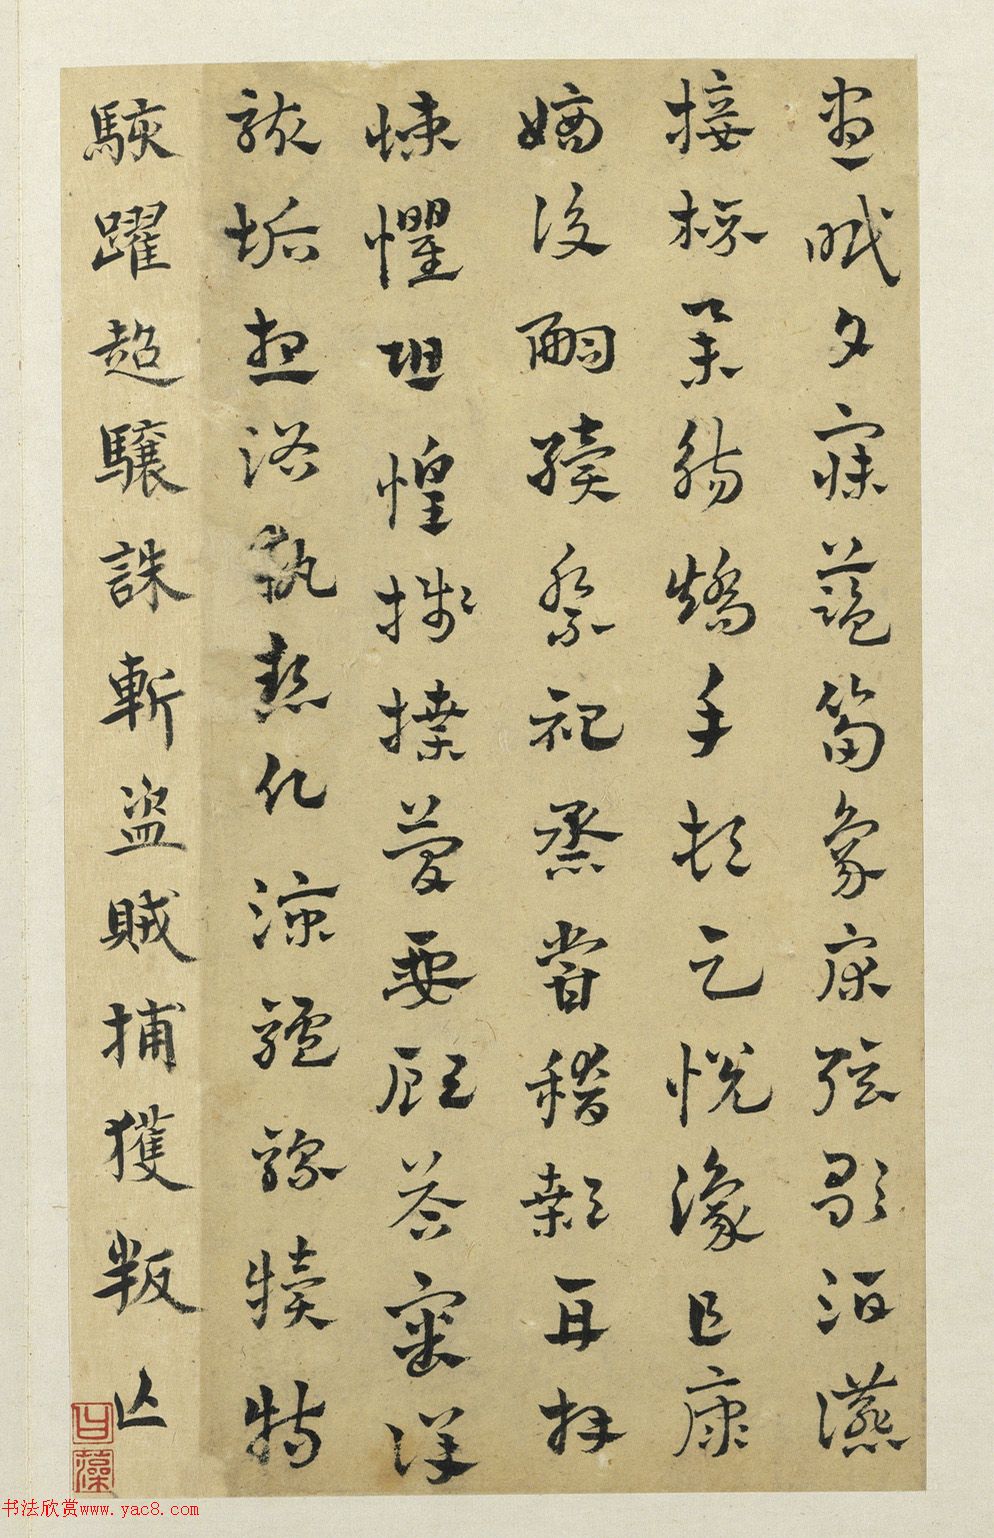 晝眠夕寐藍筍象床弦歌酒讌
接杯舉觴矯手頓足悅豫且康
嫡後嗣續祭祀蒸嘗稽顙再拜
悚懼恐惶牋牒簡要顧答審詳
骸垢想浴執熱願涼驢騾犢特
駭躍超驤誅斬盜賊捕獲叛亡
书法欣赏www.yac8.com